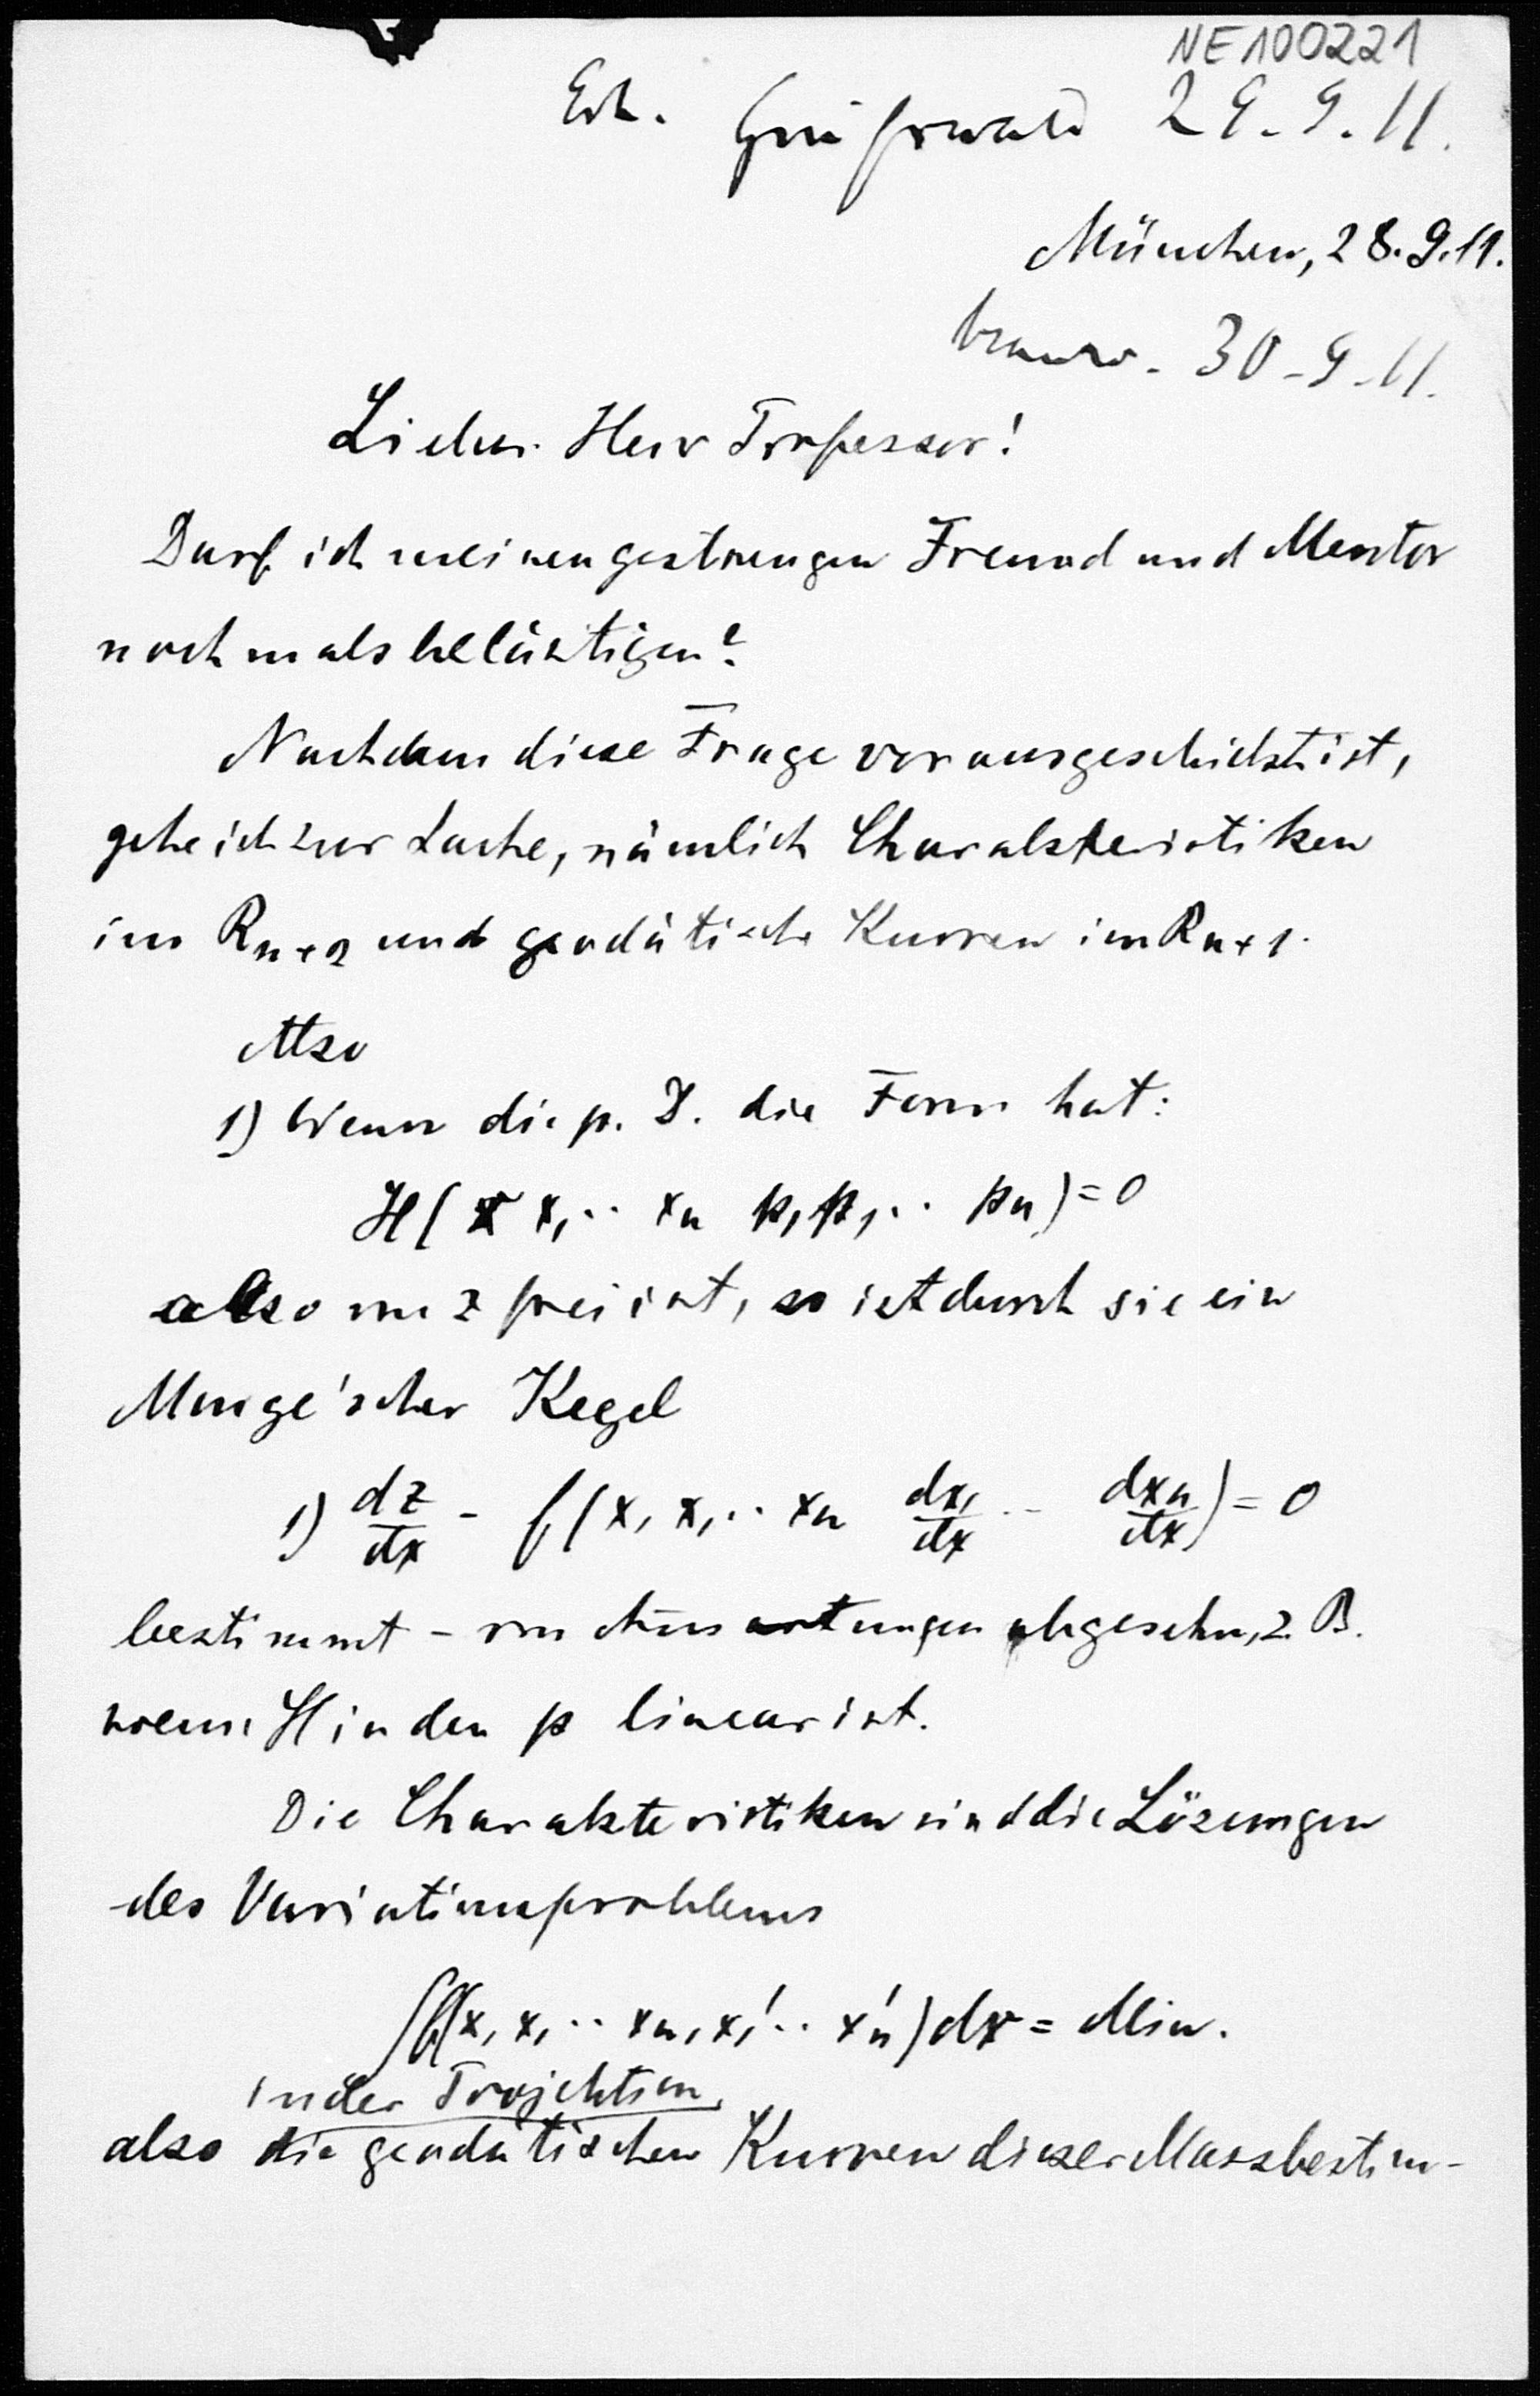 NE100221
Erh. Greifswald 29.9.11.
München, 28.9.11.
beantw. 30-9-11.
Lieber Herr Professor!
Darf ich meinen gestrengen Freund und Mentor
nochmals belästigen?
Nachdem diese Frage vorausgeschickt ist,
gehe ich zur Sache, nämlich Charakteristiken
im Rn+2 und geodätische Kurven im Rn+1.
Also
1) Wenn die p. D. die Form hat:
H(x x₁ ·· xn p, p₁ ·· pn) = 0
also von z frei ist, so ist durch sie ein
Monge'scher Kegel
1) dz/dx - f(x, x₁ ·· xn dx₁/dx ·- dxn/dx) = 0
bestimmt - von Ausartungen abgesehn, z. B.
wenn H in den p linear ist.
Die Charakteristiken sind die Lösungen
des Variationsproblems
∫f(x, x₁ ·· xn, x₁' ·· xn') dx = Min.
in der Projektion,
also die geodätischen Kurven dieser Massbestim-